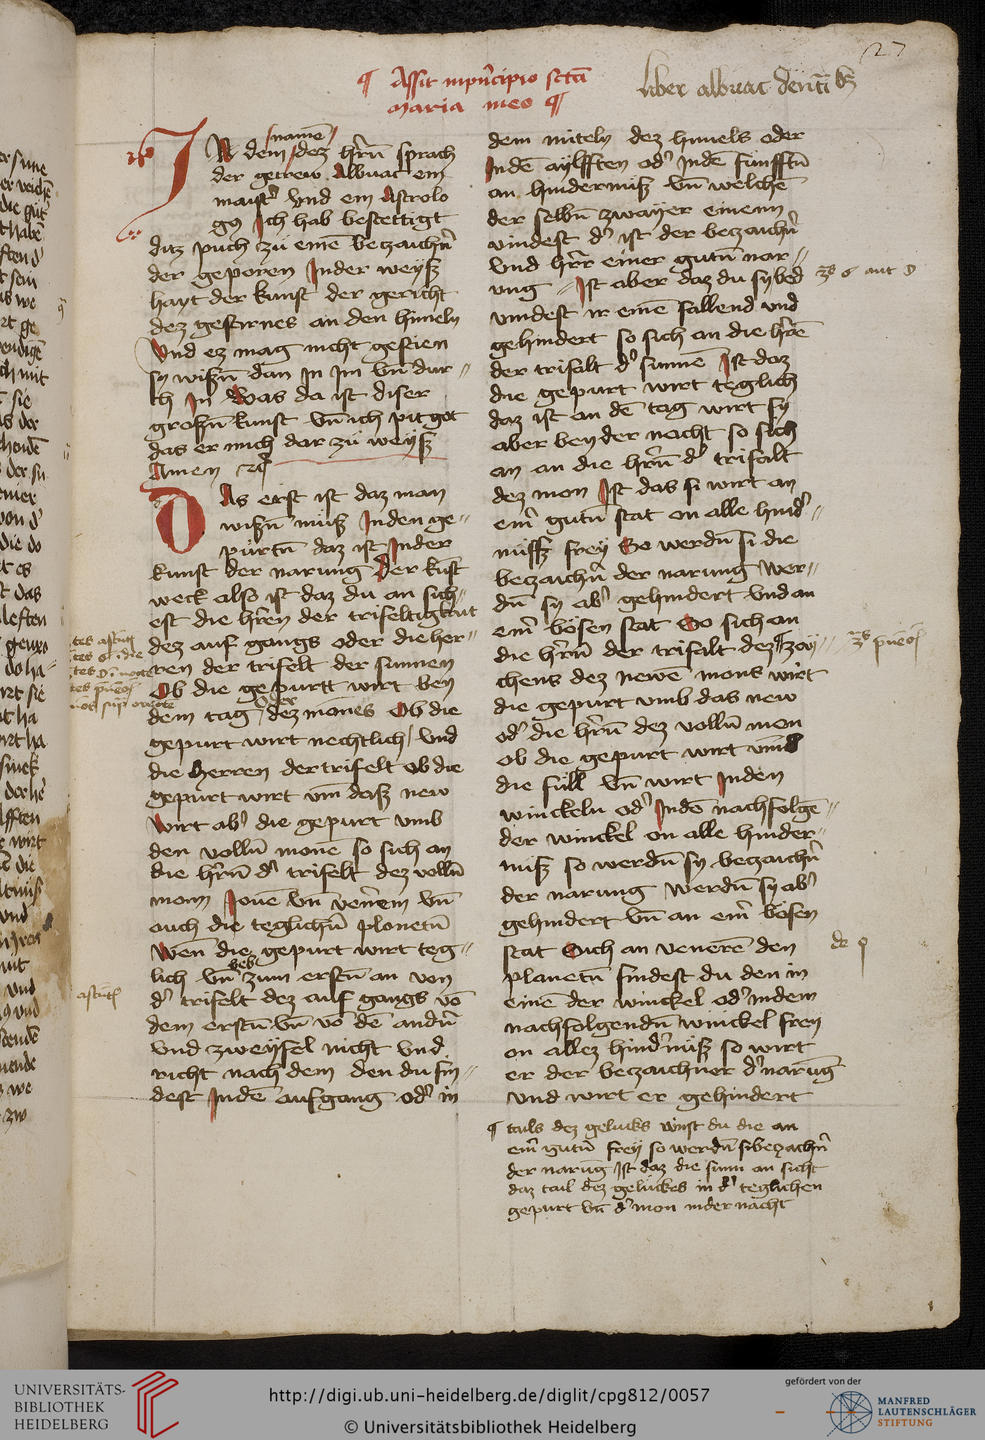 27
¶ Assit in pͥncipio sctā
maria meo ¶
liber albuac
namē
IN dem dez hr̄n̄ sprach
der getrew Albuac ein
maistˀ vnd ein Astrolo
gꝰ Ich hab bestettigt
ditz puch zu einē betzaichn̄
der geporen Inder weyß
hayt der kunst der gericht
dez gestirnes an den himeln
Vnd ez mag nicht gesein
sy wißn̄ dan In im vn̄ dur〃
ch In Was da ist diser
großn̄ kunst vn̄ ich pit got
das er mich dar zu weyß
Amen
DAs erst ist daz man
wißn̄ muß Inden ge〃
purtn̄ daz ist Inder
kunst der narung Der kunst
weck also ist daz du an sich〃
est die hr̄ren der trifeltigkait
dez auf gangs oder die her〃
ren der trifelt der sunnen
Ob die gepurtt wirt bey
oder
dem tag dez mones Ob die
gepurt wirt nechtlich vnd
die Herren der trifelt ob die
gepurt wirt vm daß new
Wirt abˀ die gepurt vmb
den volln̄ mone so sich an
die hr̄n̄ dˀ trifelt dez volln̄
monn Iouē vn̄ venerem vn̄
auch die teglichn̄ planetn̄
Wen̄ die gepurt wirt teg〃
lich vn̄ zum erstn̄ an von
dˀ trifelt dez auf gangs vō
dem erstn̄ vn̄ vō dē andn̄
vnd zweyfel nicht vnd
richt nach dem den du fin〃
dest Indē aufgang odˀ in
dem miteln dez himels oder
Indē aylfften odˀ Indē funfftn̄
an hindernuß vn̄ welchē
der selbn̄ zwayer einenn
vindest dˀ ist der betzaichn̄
vnd herr einer gutn̄ nar〃
ung Ist aber daz du sy bed
vindest in einē fallend vnd
gehindert so sich an die hr̄rē
der trifalt dˀ sunnē Ist daz
die gepurt wirt teglich
daz ist an dē tag wirt sy
aber bey der nacht so sich
an an die hr̄n̄ dˀ trifalt
dez mon Ist das si wirt an
einˀ gutn̄ stat on alle hindˀ〃
nuß frey So werdn̄ si die
betzaichn̄ der narung wer〃
dn̄ sy abˀ gehindert vnd an
einˀ bösen stat So sich an
die hr̄n̄ der trifalt dez zay〃
chens dez newē mons wirt
die gepurt vmb das new
odˀ die hr̄n̄ dez volln̄ mon
ob die gepurt wirt vmb
die full vn̄ wirt Inden
winckeln odˀ Indē nachfolgē〃
der winckel on alle hinder〃
nuß so werdn̄ sy betzaichn̄
der narung werdn̄ sy abˀ
gehindert vn̄ an einˀ bösen
stat Such an venerē den
planetn̄ findest du den in
einē der winckel odˀ indem
nachfolgendn̄ winckel frey
on allez hindˀnuß so wirt
er der betzaichner dˀ narūg
vnd wirt er gehindert
¶ tails dez gelucks vinst du die an
einˀ gutn̄ frey so werdn̄ si betzachn̄
der narūg Ist daz die sunn an sicht
daz tail dez geluckes in dˀ teglichen
gepurt vn̄ dˀ mon inder nacht
UNIVERSITÄTS-
BIBLIOTHEK
HEIDELBERG
http://digi.ub.uni-heidelberg.de/diglit/cpg812/0057
© Universitätsbibliothek Heidelberg
gefördert von der
MANFRED
LAUTENSCHLÄGER
STIFTUNG